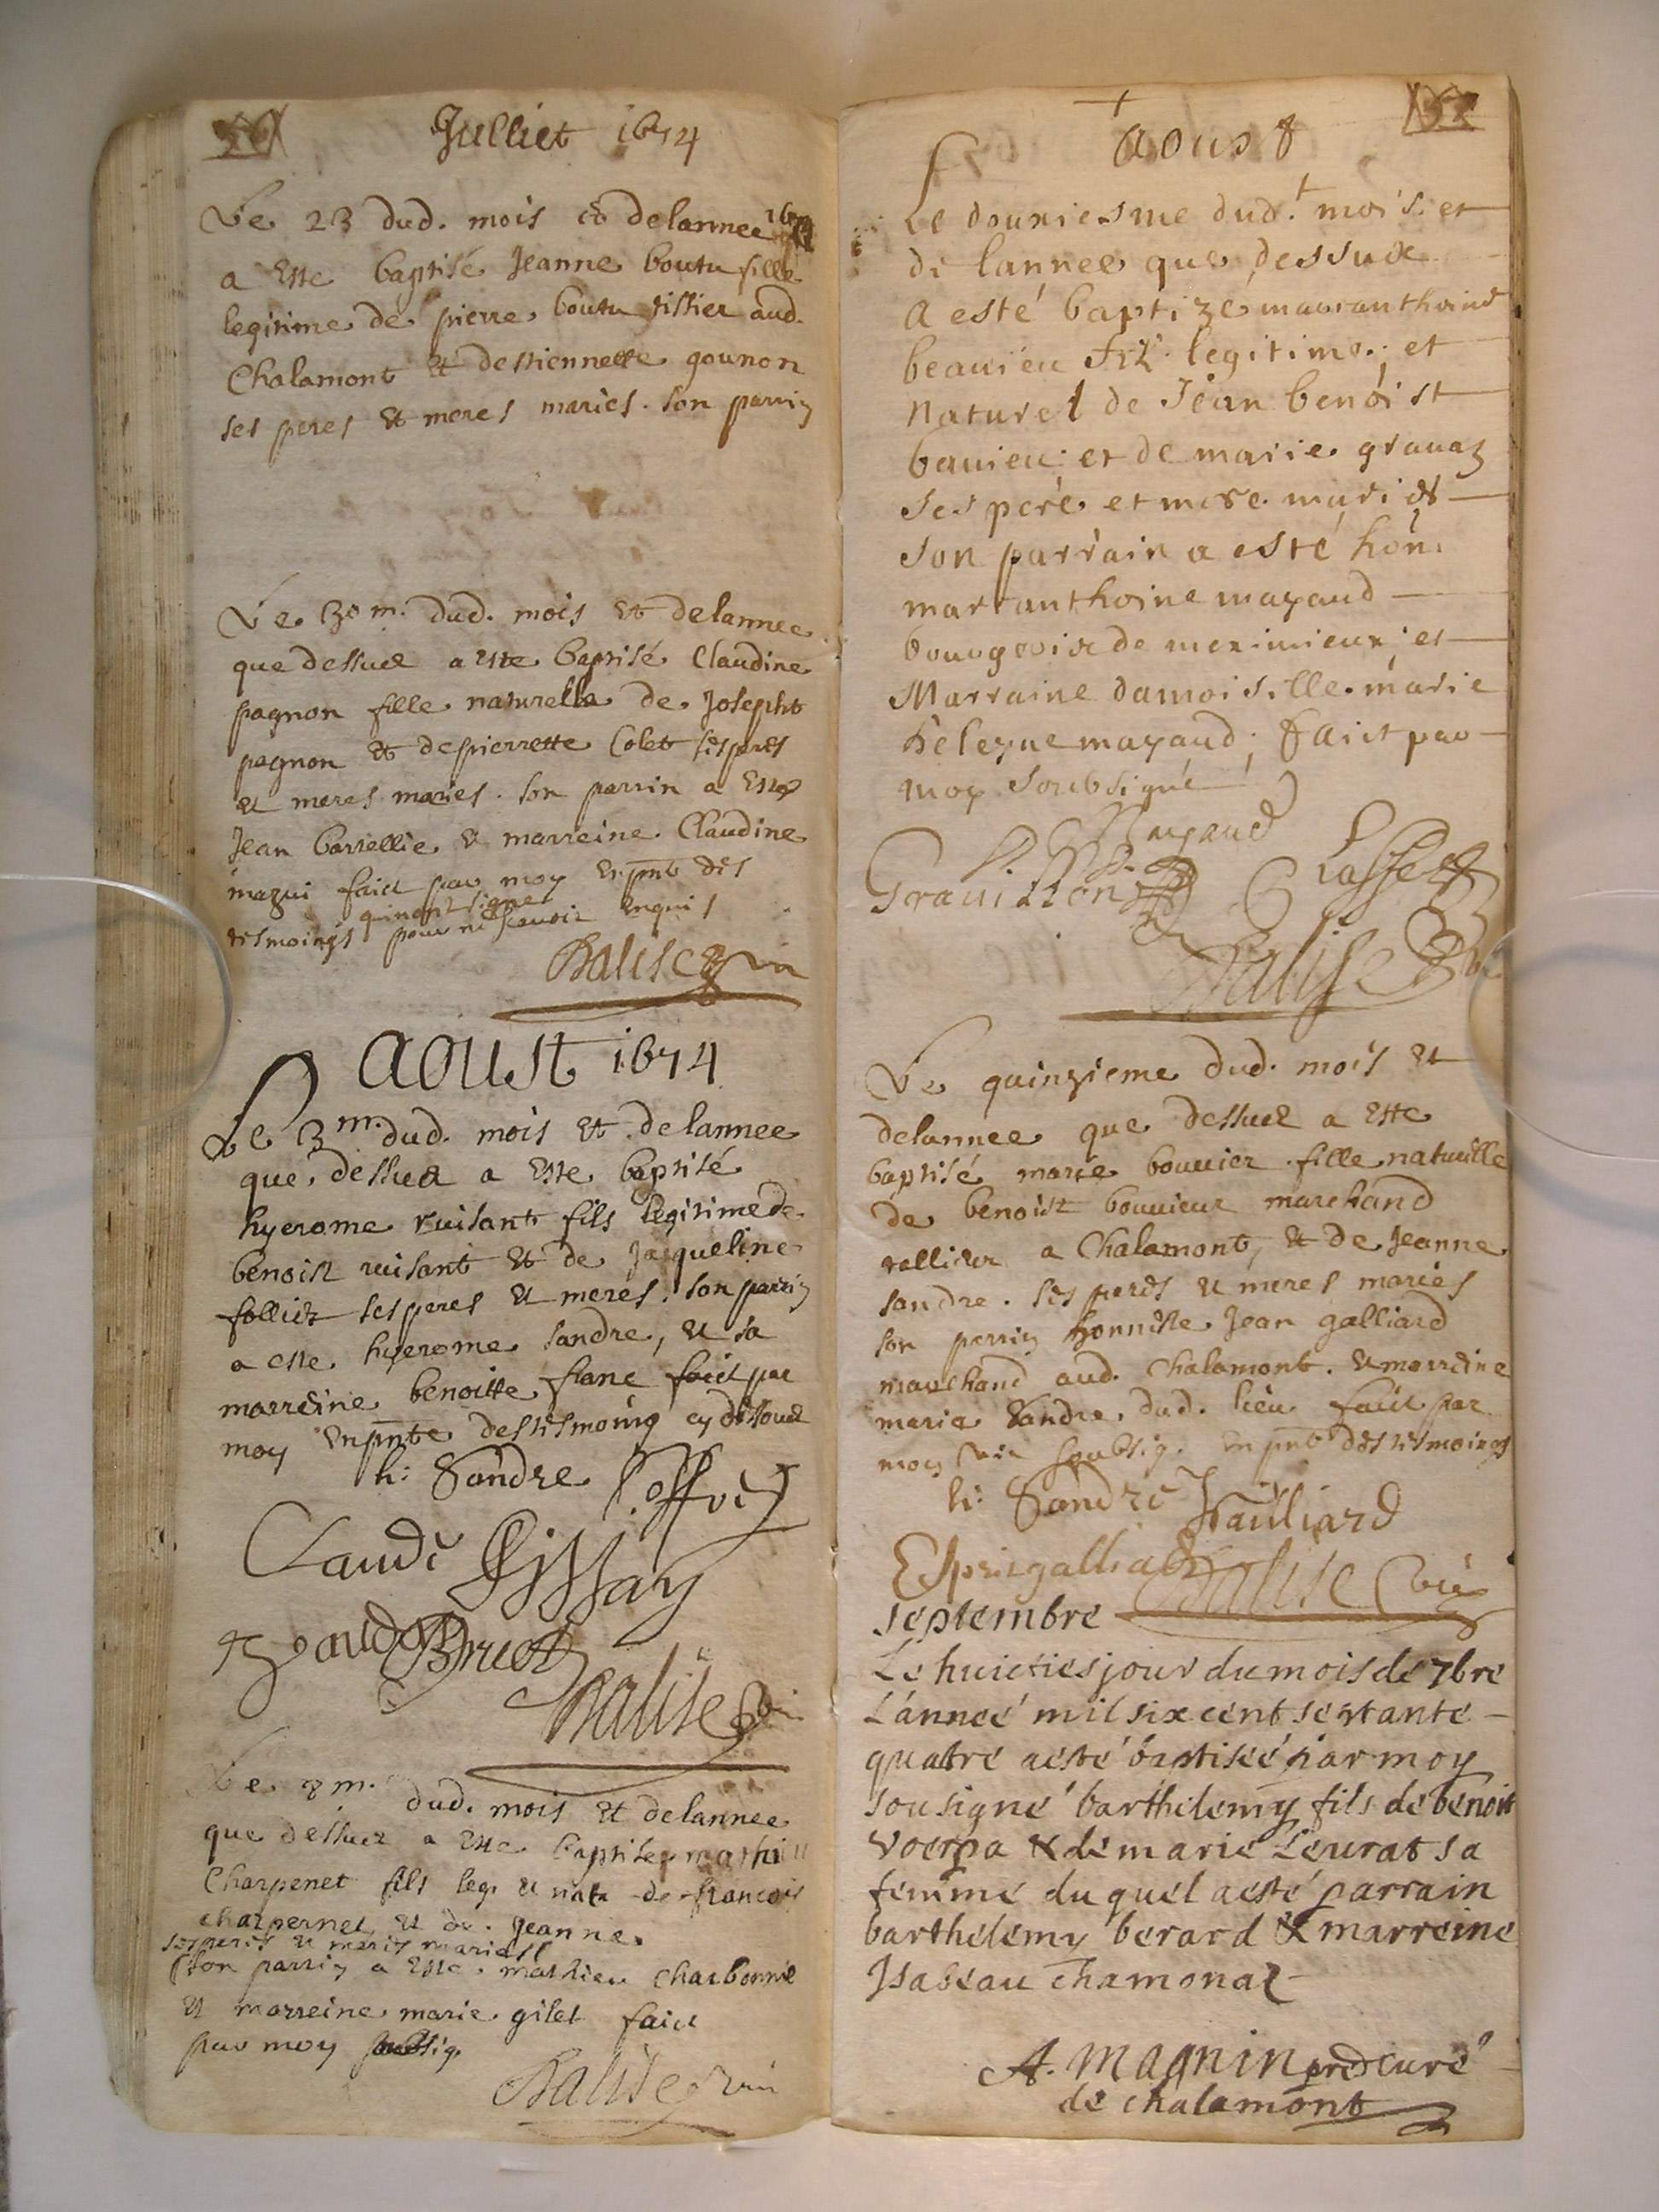 Julliet 1674
Le 23 dud. mois et delannee
a Este baptisé Jeanne boutu fille
legitime de pierre boutu tissier aud.
Chalamont et destiennette gounon
ses peres et meres mariés. son parrin
Le 30m. dud. mois et delannee
que dessus a Este baptisé Claudine
pagnon fille naturelle de Josepht
pagnon et depierrette Colet sesperes
et meres maries. son parrin a Este
Jean barellie et marreine Claudine
mazui faict par moy Enpnt des
quinont signe
tesmoings pour ne scavoir Enquis
Balise
aoust 1674
Le 3m. dud. mois et delannee
que dessus a Este baptisé
hyerome ruisant fils legitime de
benoist ruisant et de Jacqueline
folliet ses peres et meres. son parrin
a este hyerome sandre, et sa
marreine benoitte flanc faict par
moy Enpnte destesmoing cy dessous
hi: Sandre
Claude
Balise
Le 8m. dud. mois et delannee
que dessus a Este baptise mathieu
Charpenet fils leg. et natu de francois
charpernet et de Jeanne
ses peres et meres mariest
son parrin a Este mathieu Charbonnie
et marreine marie gilet faict
par moy soubsig.
Balise
aoust
Le douxiesme dud.t mois et
de lannee que dessux
a esté baptizé marcanthoine
beauieu filz legitime et
naturel de Jean benoist
bauieu et de marie grauaz
ses pere et mere mariés
son parrain a esté hon.
marcanthoine mayaud
bourgeois de meximieux; et
Marraine damoiselle marie
heleyne mayaud; faict par
moy soubsigné
Mayaud
Grauillon
Balise
Le quinzieme dud. mois et
delannee que dessus a Este
baptisé marie bouuier fille naturelle
de benoist bouuieur marchand
tellier a Chalamont, et de Jeanne
sandre. ses peres et meres mariés
son perrin honneste Jean galliard
marchand aud. Chalamont. et marreine
marie Sandre. dud. lieu faict par
moy vic soubsig. En pnt des tesmoings
hi: Sandre Gailliard
Espritgalliard Balise
septembre
Le huicties jour du mois de 7bre
L'annee mil six cent septante
quatre aesté baptiseé par moy
sousigné barthelemy fils de benoit
voerpa & de marie Leurat sa
femme du quel aesté parrain
barthelemy berard & marreine
Isabeau Chamonal
A. Magnin pred curé
de chalamont